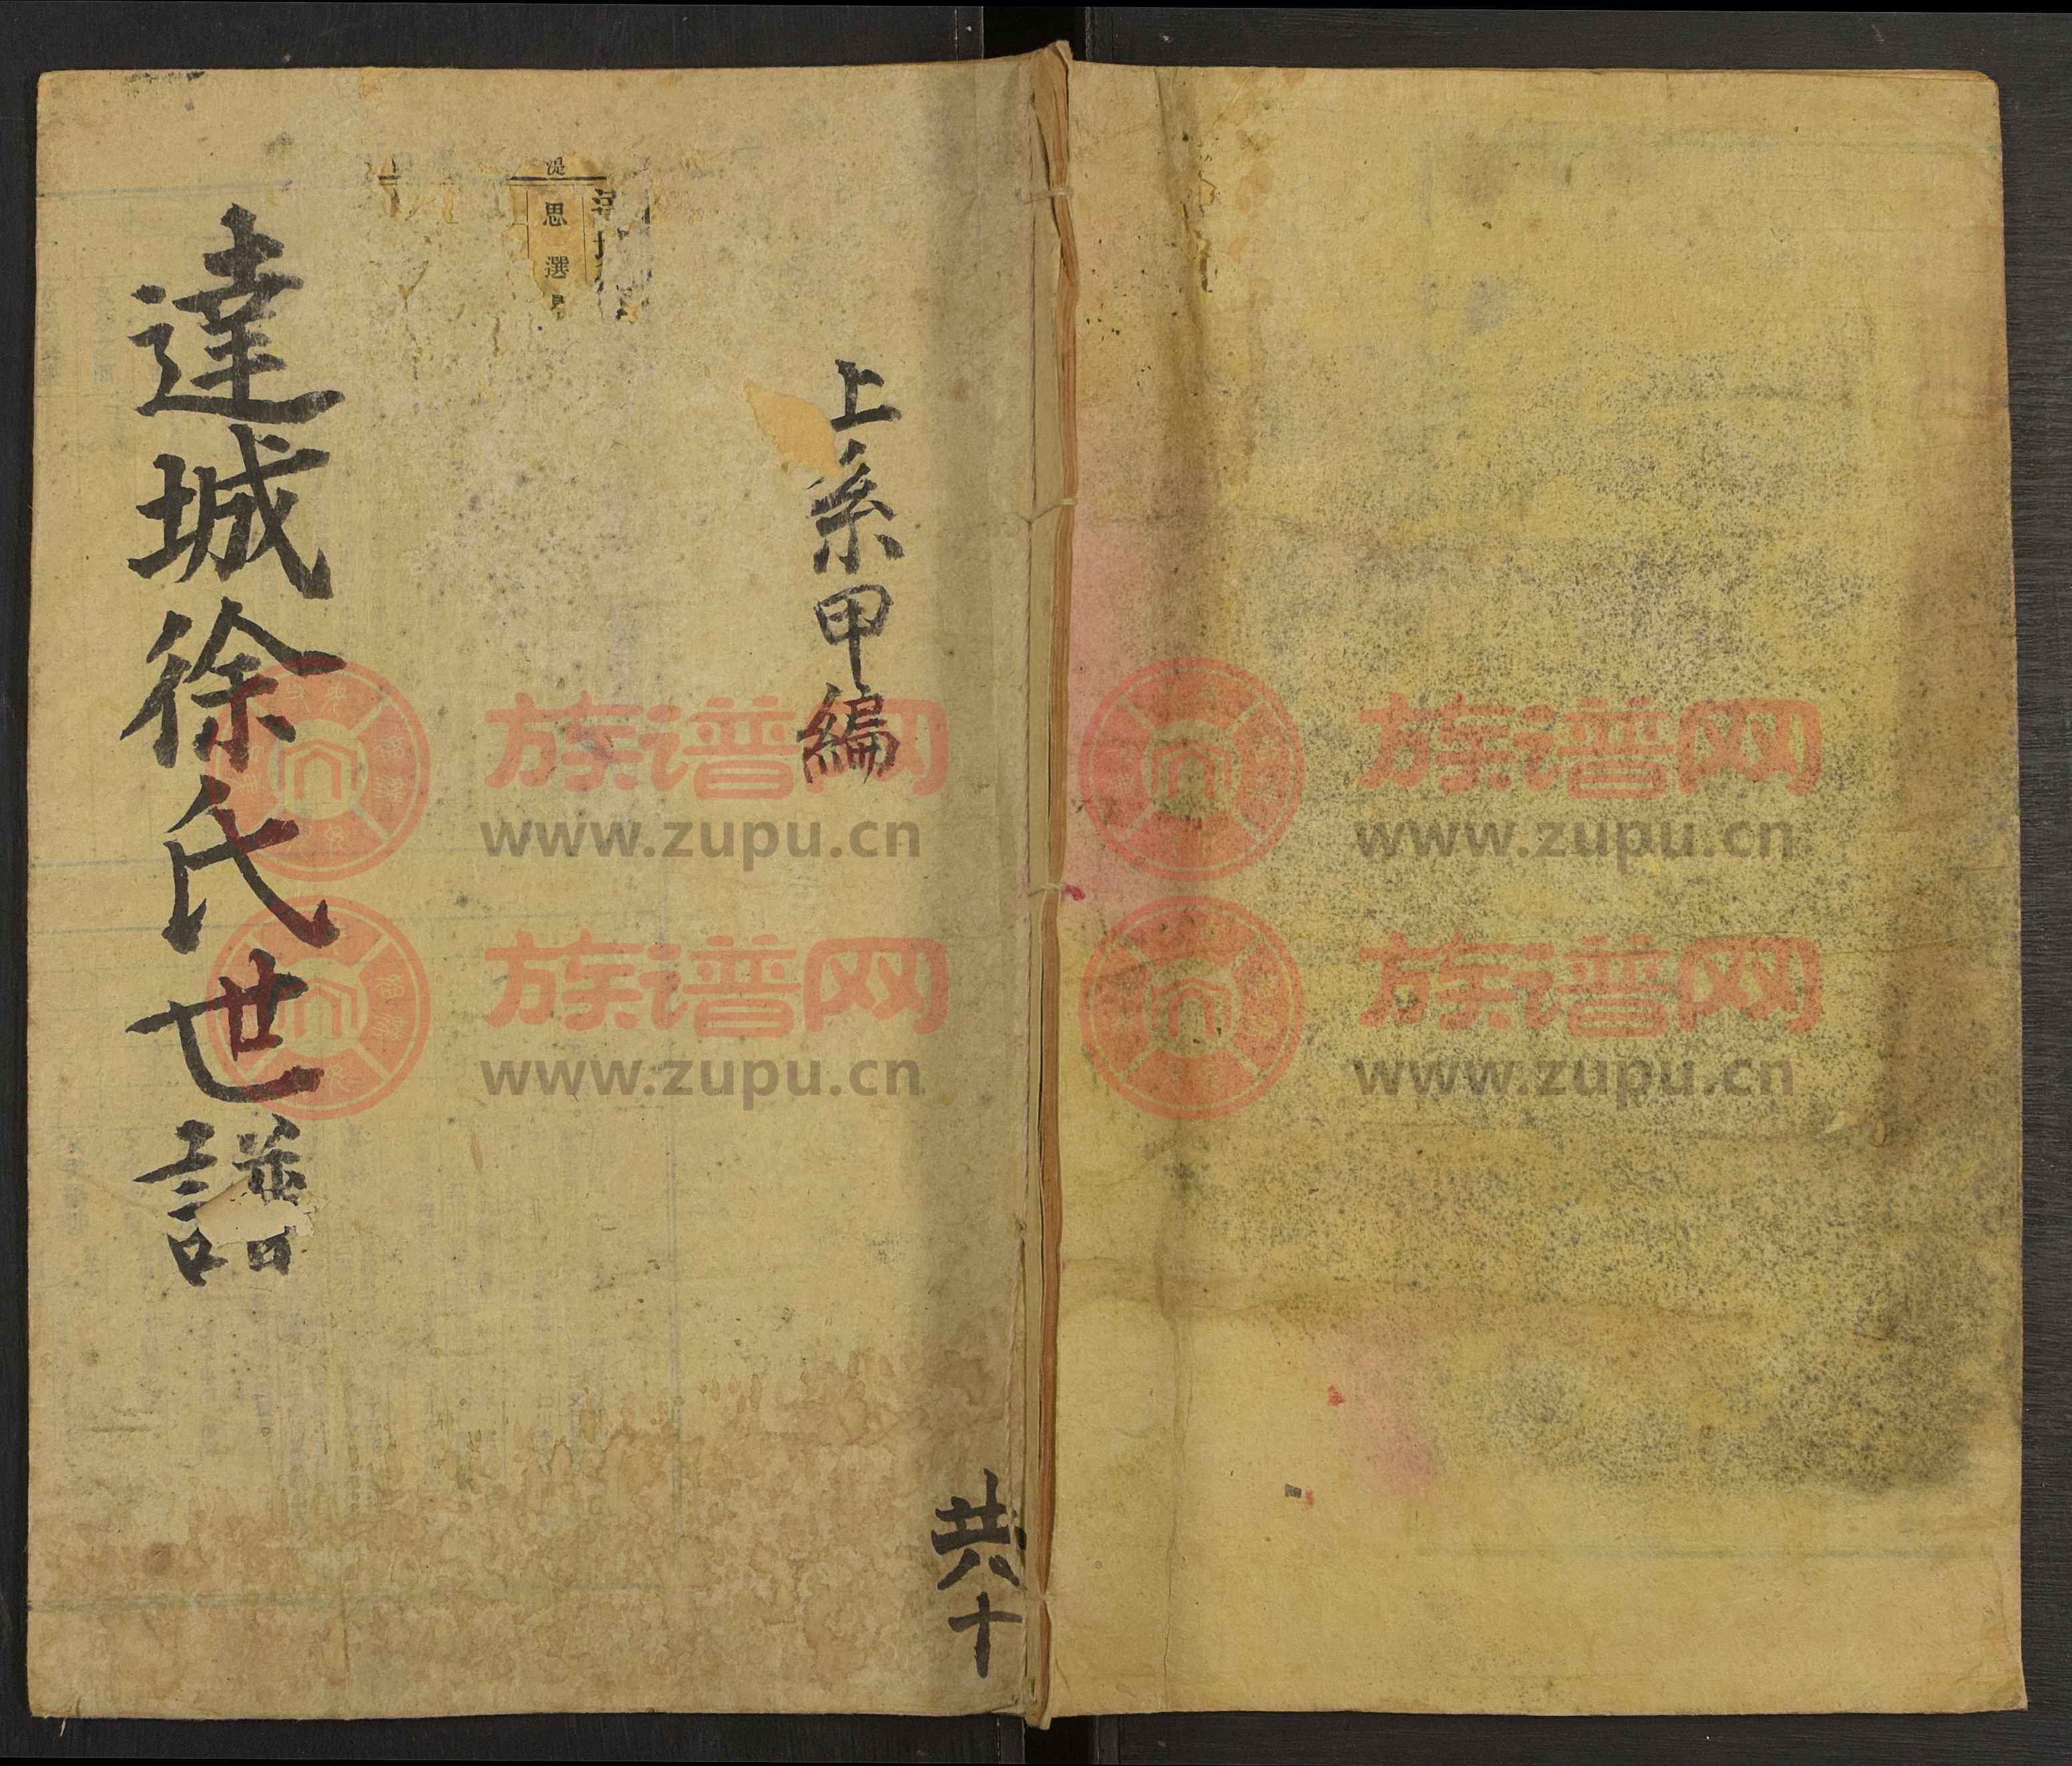 達城徐氏世譜
上系甲編
共十
思選
族谱网
www.zupu.cn
族谱网
www.zupu.cn
族谱网
www.zupu.cn
族谱网
www.zupu.cn